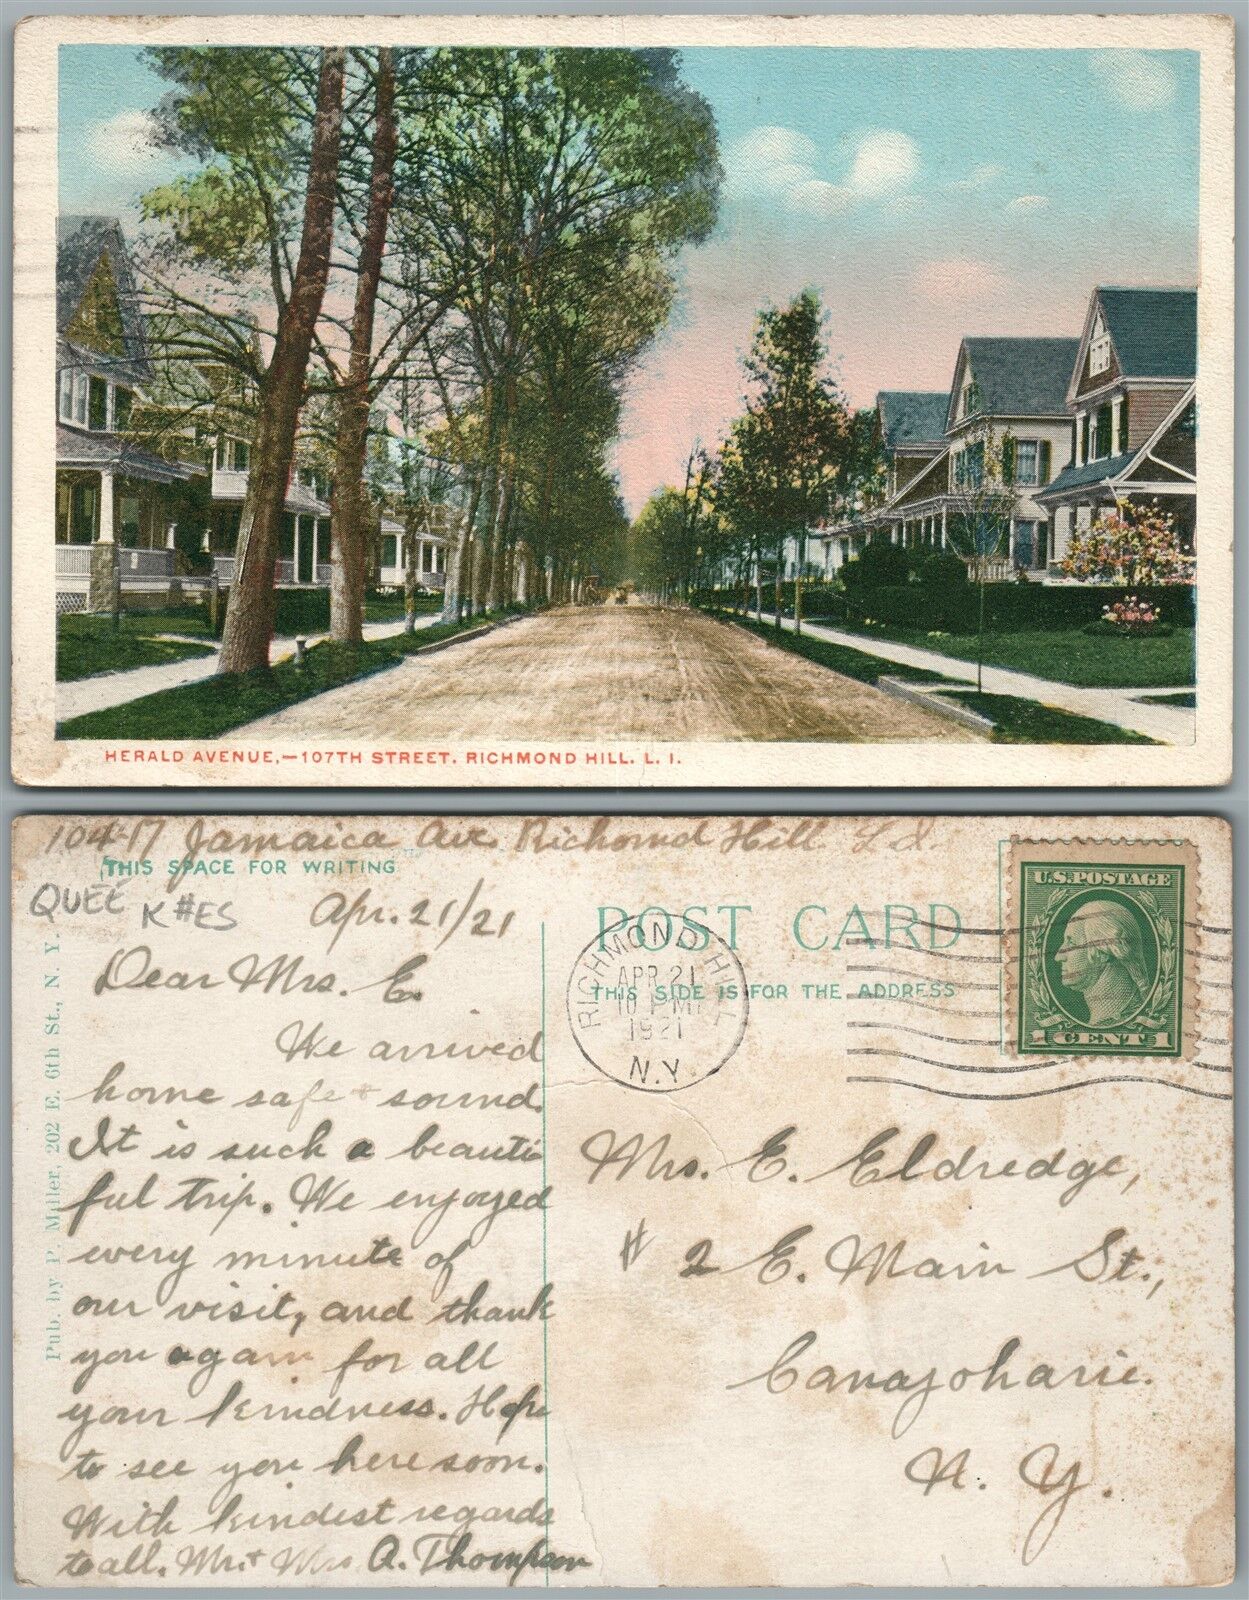 HERALD AVENUE,—107TH STREET. RICHMOND HILL. L. I.
104-17 Jamaica Ave. Richomd Hill L. I.
THIS SPACE FOR WRITING
QUEE K#ES
Apr. 21/21
Dear Mrs. E.
We arrived
home safe + sound.
It is such a beauti
ful trip. We enjoyed
every minute of
our visit, and thank
you again for all
your kindness. Hope
to see you here soon.
With kindest regards
to all. Mr. + Mrs A. Thompson
Pub. by P. Miller, 202 E. 6th St., N. Y.
POST CARD
THIS SIDE IS FOR THE ADDRESS
RICHMOND HILL
APR 21
10 PM
1921
N.Y.
U.S. POSTAGE
1 CENT 1
Mrs. E. Eldredge,
# 2 E. Main St.,
Canajoharie.
N. Y.